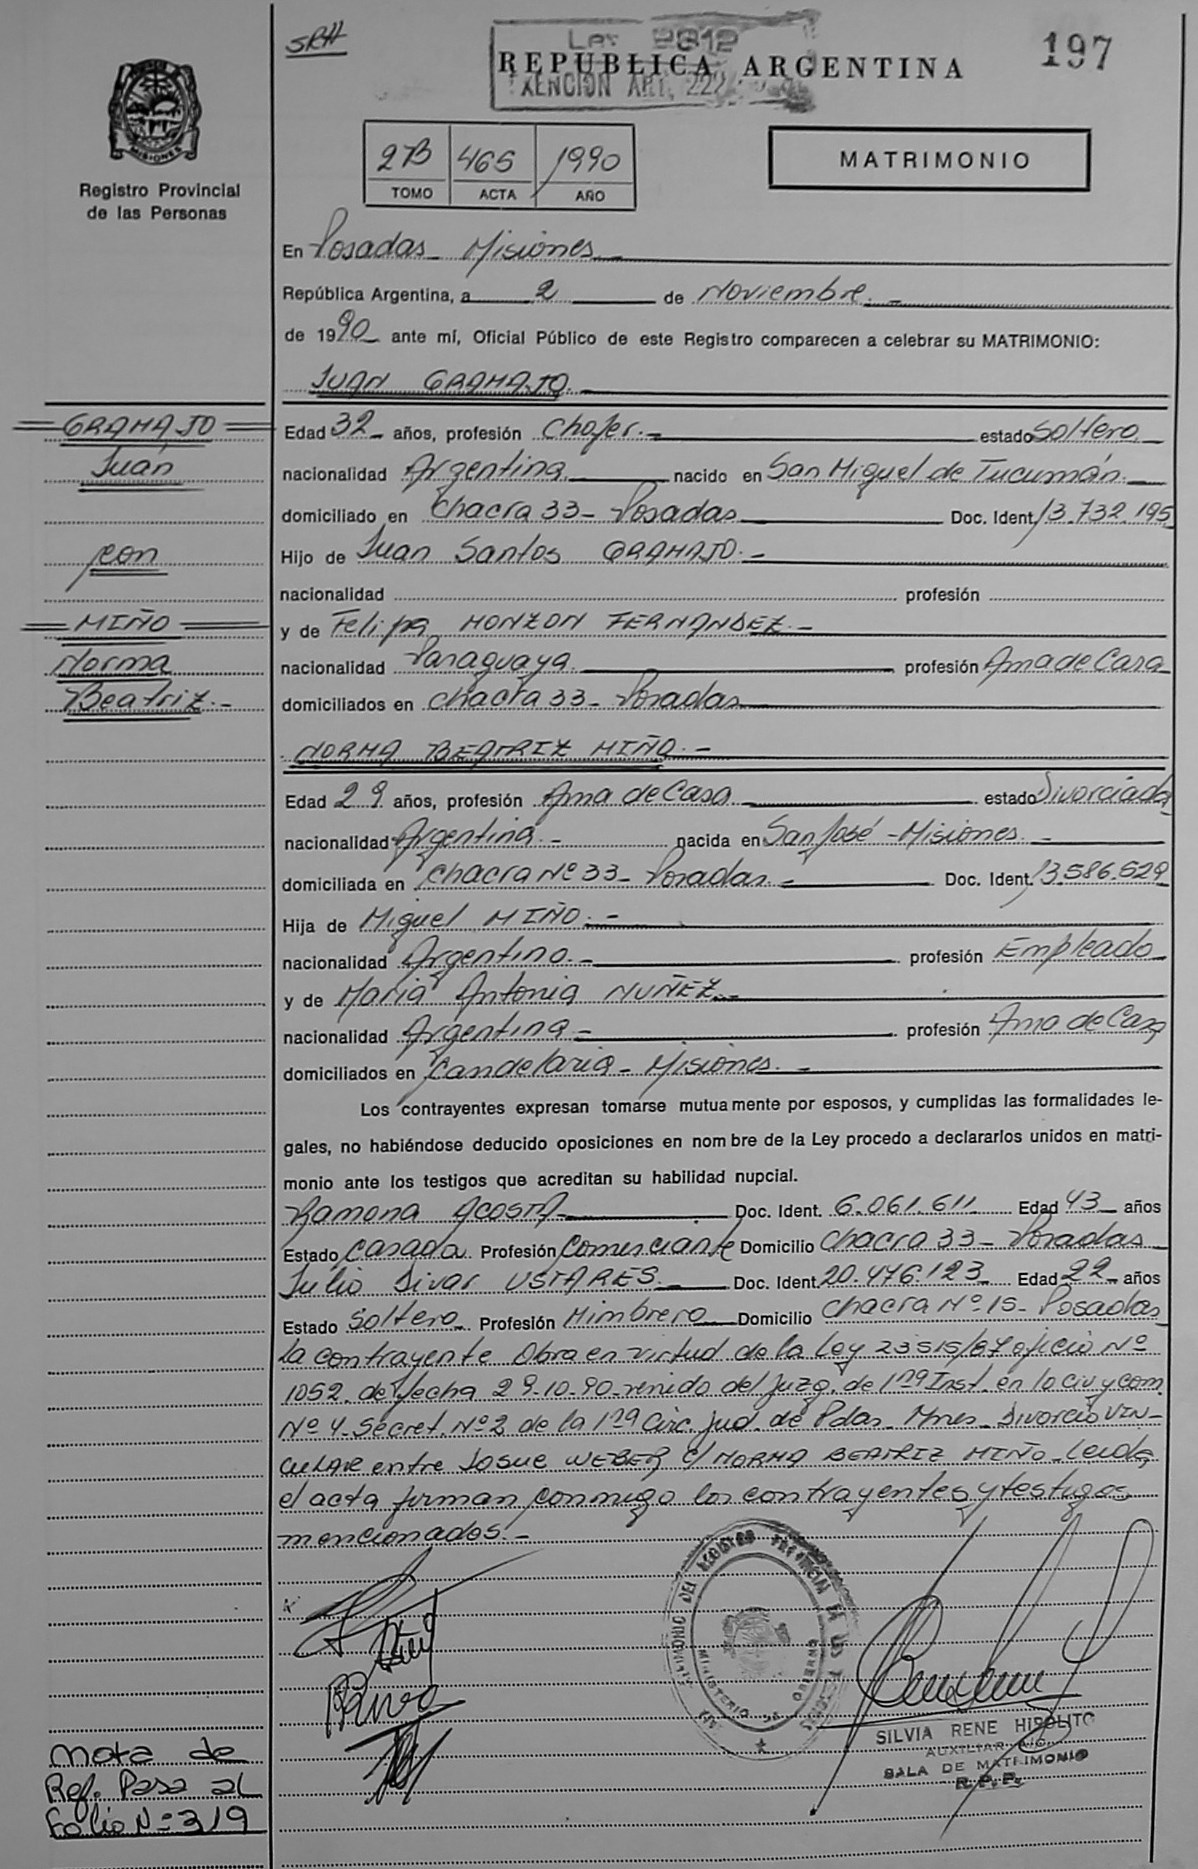 SRH
Ley 2812
EXENCION ART. 222
REPUBLICA ARGENTINA
197
MISIONES
Registro Provincial
de las Personas
2B 465 1990
TOMO ACTA AÑO
MATRIMONIO
En Posadas - Misiones.-
República Argentina, a 2 de Noviembre.-
de 1990 ante mí, Oficial Público de este Registro comparecen a celebrar su MATRIMONIO:
JUAN GRAMAJO.-
GRAMAJO
Juan
con
MIÑO
Norma
Beatriz.-
Edad 32- años, profesión Chofer.- estado Soltero
nacionalidad Argentina. nacido en San Miguel de Tucumán.-
domiciliado en Chacra 33- Posadas Doc. Ident. 13.732.195
Hijo de Juan Santos GRAMAJO.-
nacionalidad profesión
y de Felipa MONZON FERNANDEZ.-
nacionalidad Paraguaya. profesión Ama de Casa
domiciliados en chacra 33- Posadas
NORMA BEATRIZ MIÑO.-
Edad 29 años, profesión Ama de Casa estado Divorciada
nacionalidad Argentina.- nacida en San José - Misiones.-
domiciliada en Chacra Nº 33- Posadas.- Doc. Ident. 13.586.529
Hija de Miguel MIÑO.-
nacionalidad Argentino.- profesión Empleado
y de Maria Antonia NUÑEZ.-
nacionalidad Argentina.- profesión Ama de Casa
domiciliados en Candelaria - Misiones.-
Los contrayentes expresan tomarse mutuamente por esposos, y cumplidas las formalidades le-
gales, no habiéndose deducido oposiciones en nombre de la Ley procedo a declararlos unidos en matri-
monio ante los testigos que acreditan su habilidad nupcial.
Ramona ACOSTA Doc. Ident. 6.061.611 Edad 43 años
Estado Casada Profesión Comerciante Domicilio Chacra 33- Posadas
Julio Sivar USTARES.- Doc. Ident. 20.476.123 Edad 22- años
Estado Soltero Profesión Mimbrero Domicilio Chacra Nº 15- Posadas
La contrayente Obra en virtud de la Ley 23515/87 oficio Nº
1052. de fecha 29-10-90-venido del Juzg. de 1ra Inst. en lo civ y com.
Nº 4-Secret. Nº 2 de la 1ra Circ. Jud. de Pdas. Mnes- Divorcio VIN-
CULAR entre Josue WEBER c/ NORMA BEATRIZ MIÑO-Leida
el acta firman conmigo los contrayentes y testigos
mencionados.-
DEL REGISTRO PROVINCIAL DE LAS PERSONAS
MINISTERIO DE GOBIERNO
SILVIA RENE HIPOLITO
AUXILIAR
SALA DE MATRIMONIO
R.P.P.
Nota de
Ref. Pasa al
Folio Nº 319